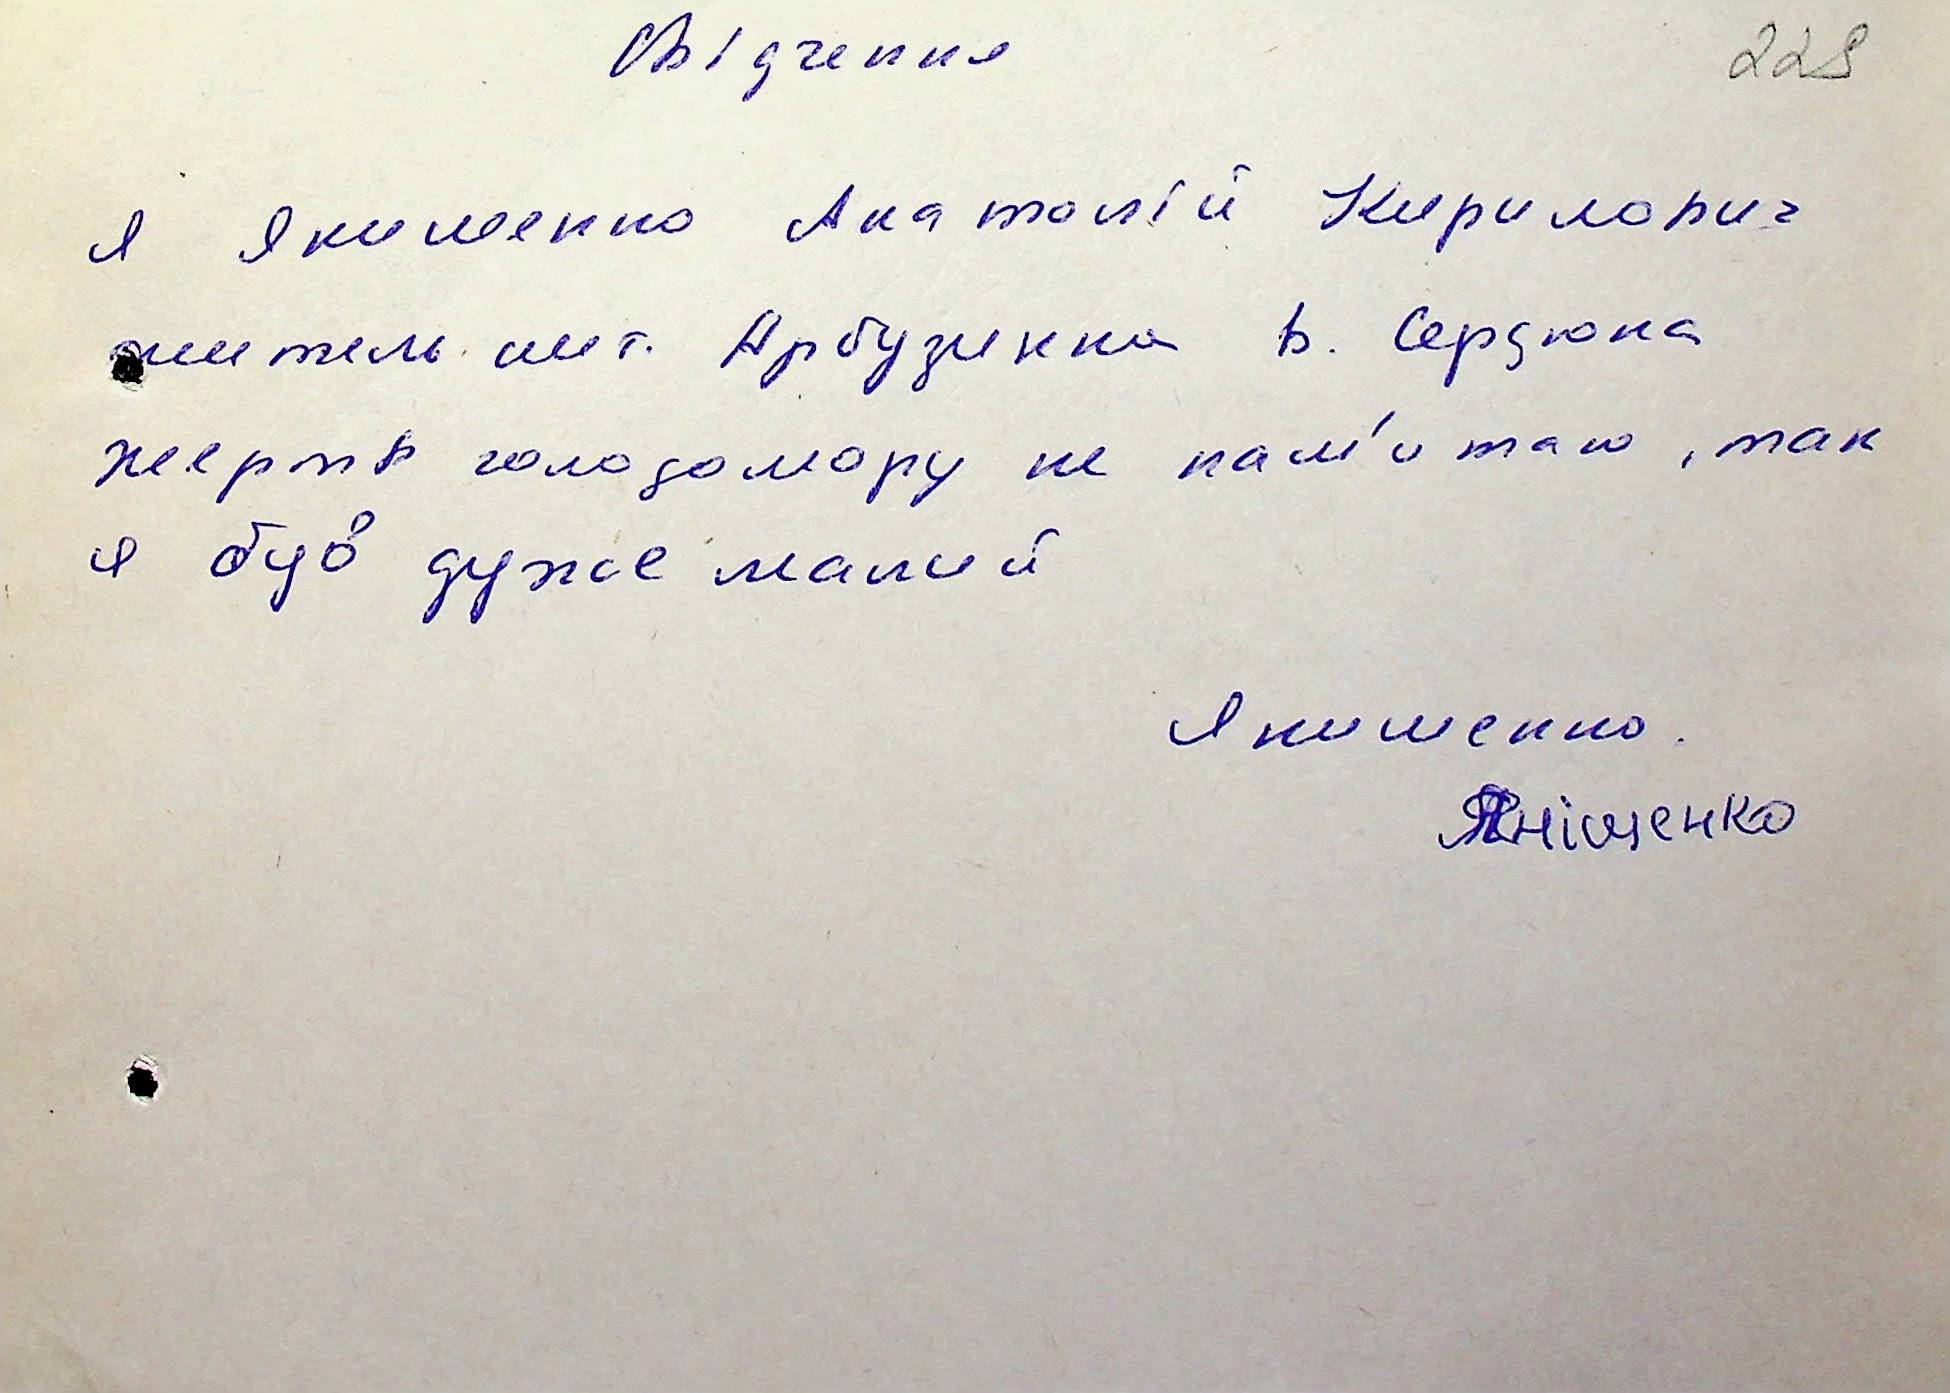 Свідчення
228
Я Якименко Анатолій Кирилович
житель смт. Арбузинка в. Сердюка
жертв голодомору не пам'ятаю, так
я був дуже малий
Якименко.
Яніщенко